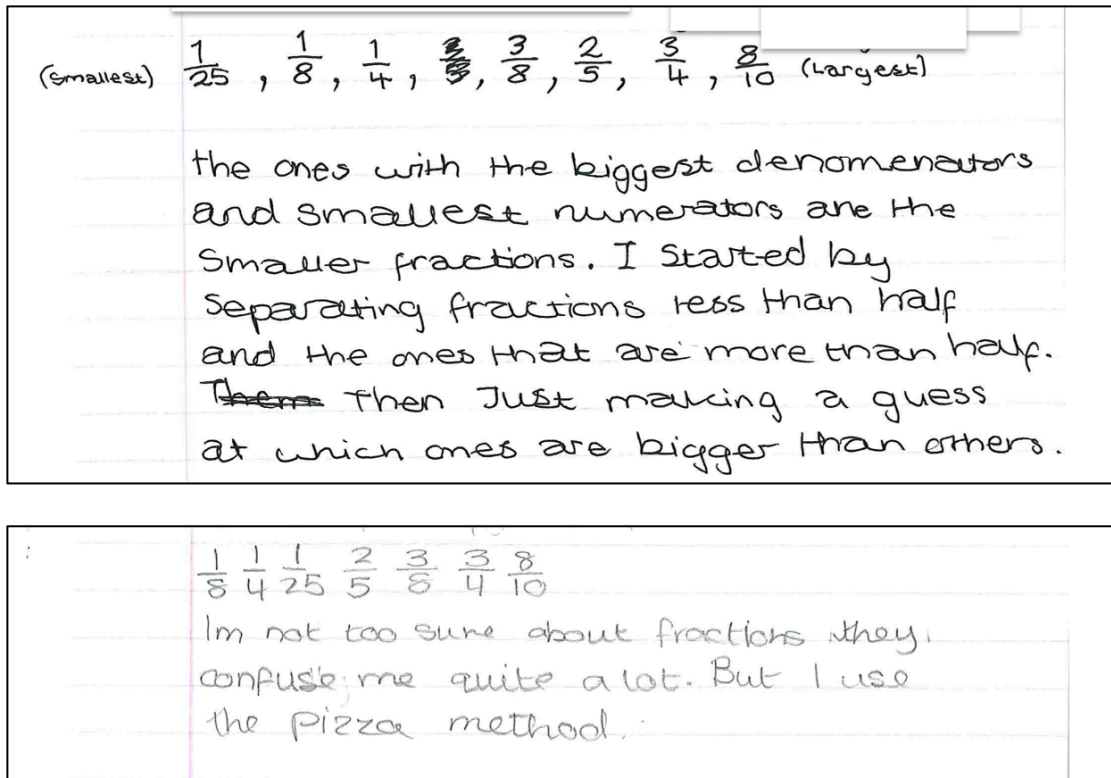 (smallest) 1/25, 1/8, 1/4, 3/8, 2/5, 3/4, 8/10 (Largest)
the ones with the biggest denomenators
and smallest numerators are the
smaller fractions. I started by
separating fractions less than half
and the ones that are more than half.
Them Then Just making a guess
at which ones are bigger than others.
1/8 1/4 1/25 2/5 3/8 3/4 8/10
Im not too sure about fractions they
confuse me quite a lot. But I use
the pizza method.